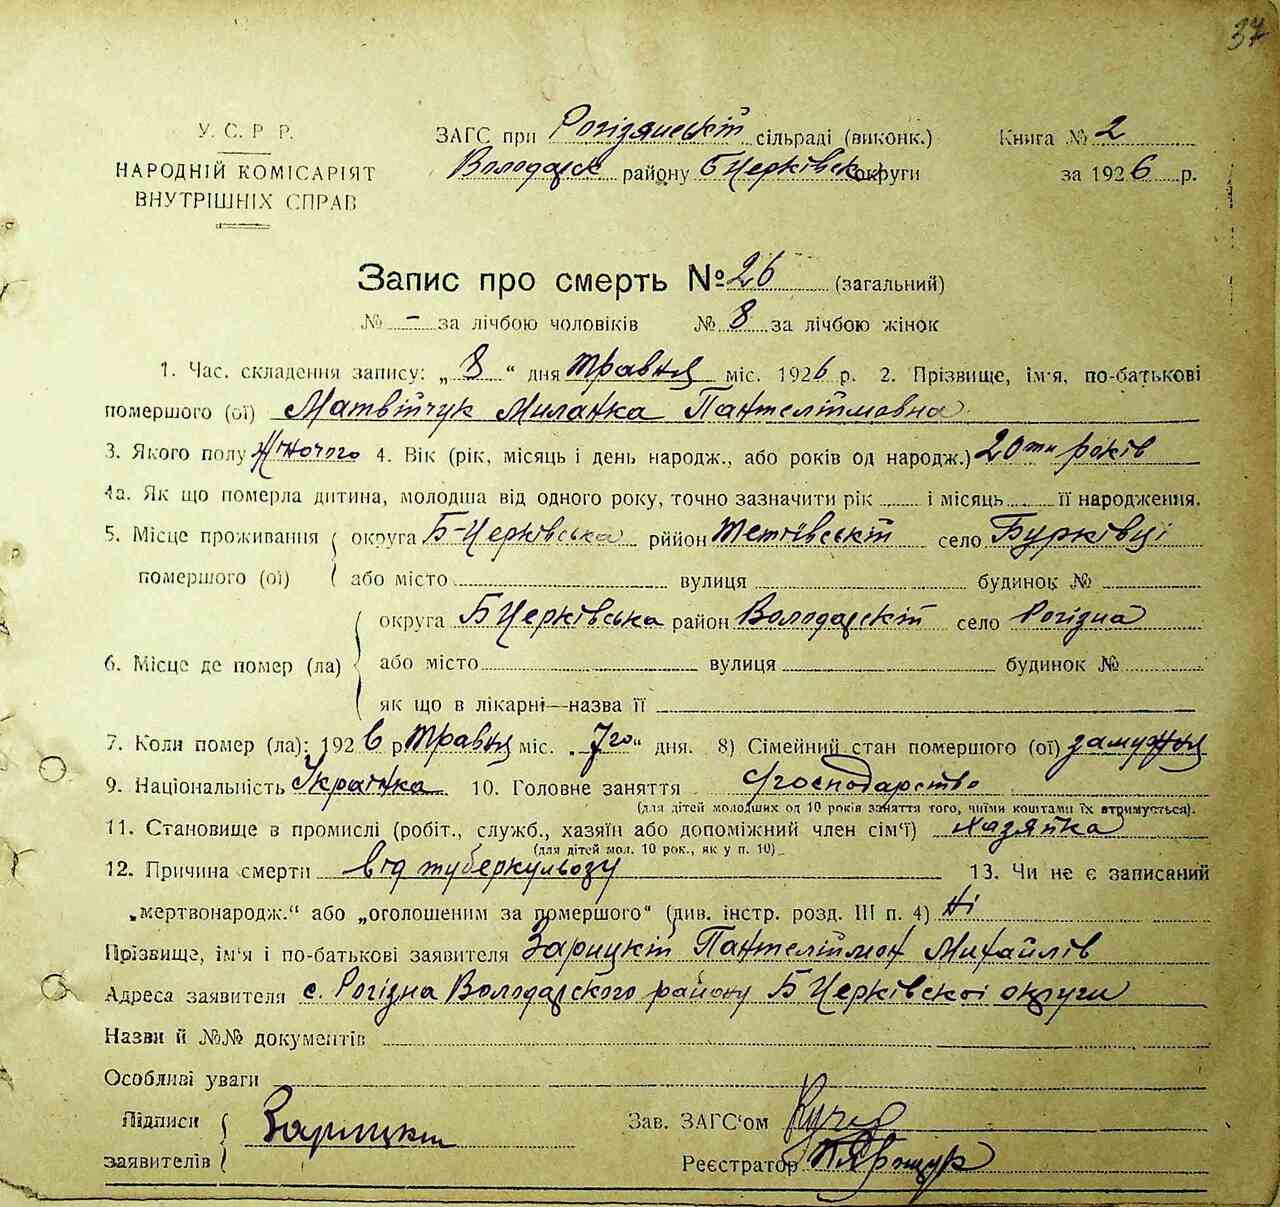 37
У. С. Р Р.
НАРОДНІЙ КОМІСАРІЯТ
ВНУТРІШНІХ СПРАВ
ЗАГС при Рогізянській сільраді (виконк.)
Володарск району Б Церківськ округи
Книга № 2
за 1926 р.
Запис про смерть № 26 (загальний)
№ - за лічбою чоловіків № 8 за лічбою жінок
1. Час. складення запису: „ 8 “ дня травня міс. 1926 р. 2. Прізвище, ім‘я, по-батькові
помершого (ої) Матвійчук Миланка Пантелімовна
3. Якого полу жіночого 4. Вік (рік, місяць і день народж., або років од народж.) 20ти років
4а. Як що померла дитина, молодша від одного року, точно зазначити рік і місяць її народження.
5. Місце проживання помершого (ої) округа Б-Церківська рййон Тетіївській село Бурківці
або місто вулиця будинок №
6. Місце де помер (ла) округа Б Церківська район Володарскій село Рогізна
або місто вулиця будинок №
як що в лікарні—назва її
7. Коли помер (ла): 1926 р травня міс. „7го“ дня. 8) Сімейний стан помершого (ої) замужня
9. Національність Українка 10. Головне заняття господарство
(для дітей молодших од 10 років заняття того, чиїми коштами їх втримується).
11. Становище в промислі (робіт., служб., хазяїн або допоміжний член сім‘ї) хазяйка
(для дітей мол. 10 рок., як у п. 10)
12. Причина смерти від туберкульозу 13. Чи не є записаний
„мертвонародж.“ або „оголошеним за помершого“ (див. інстр. розд. III п. 4) ні
Прізвище, ім‘я і по-батькові заявителя Зарицкій Пантелімон Михайлів
Адреса заявителя с. Рогізна Володарского району Б Церківскоі округи
Назви й №№ документів
Особливі уваги
Підписи заявителів Зарицкий
Зав. ЗАГС‘ом
Реєстратор